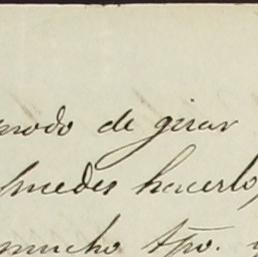 modo de girar
puedes hacerlo,
mucho tpo. y